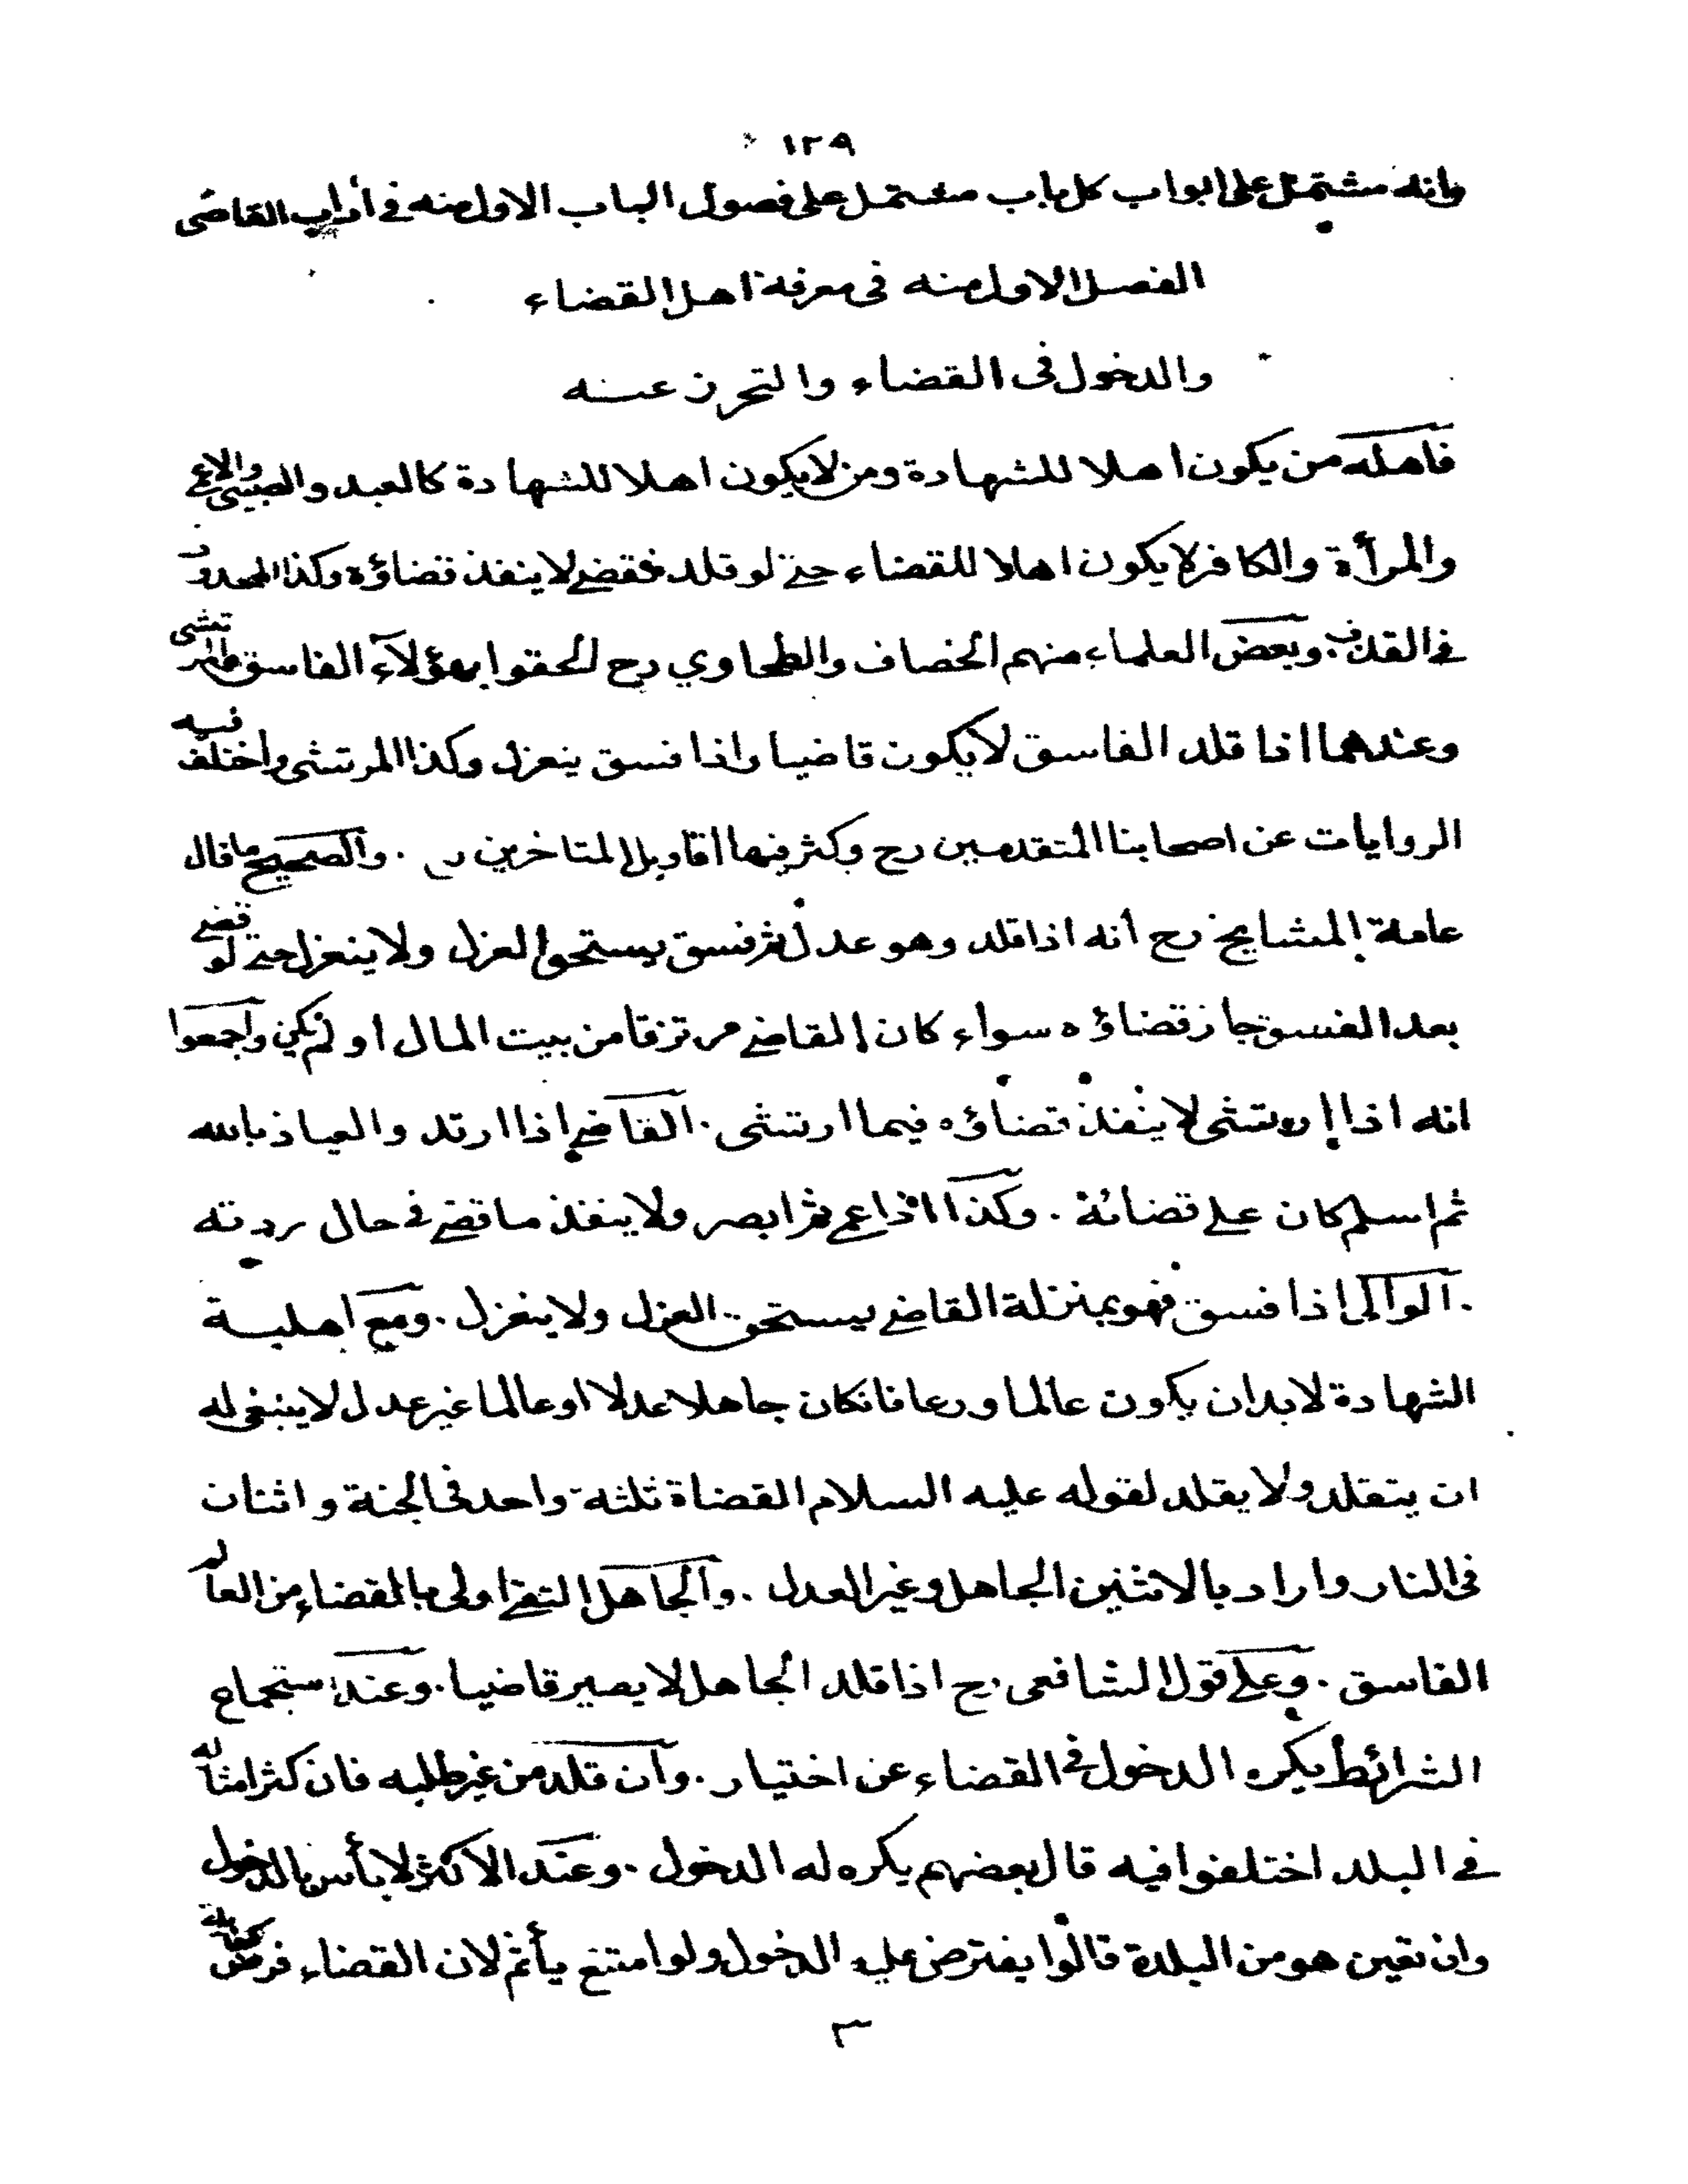 ١٢٩
وانه مشتمل على ابواب كل باب مشتمل على فصول الباب الاول منه في آداب القاضى
الفصل الاول منه في معرفة اهل القضاء
والدخول فى القضاء والتحرز عنه
فاهله من يكون اهلا للشهادة ومن لا يكون اهلا للشهادة كالعبد والصبى والاعمى
والمرأة والكافر لا يكون اهلا للقضاء حتى لو قلد فقضى لا ينفذ قضاؤه وكذا المحدود
في القذف. وبعض العلماء منهم الخصاف والطحاوي رح الحقوا بهؤلآء الفاسق والمرتشى
وعندهما اذا قلد الفاسق لا يكون قاضيا واذا فسق ينعزل وكذا المرتشى واختلف فيه
الروايات عن اصحابنا المتقدمين رح وكثر فيها اقاويل المتاخرين ر . والصحيح ما قال
عامة المشايخ رح انه اذا قلد وهو عدل ثم فسق يستحق العزل ولا ينعزل حتى لو قضى
بعد الفسق جاز قضاؤه سواء كان القاضي مرتزقا من بيت المال او لم يكن واجمعوا
انه اذا ارتشى لا ينفذ قضاؤه فيما ارتشى . القاضي اذا ارتد والعياذ بالله
ثم اسلم كان على قضائه . وكذا اذا عمى ثم ابصر ولا ينفذ ما قضى في حال ردته
. آلوالى اذا فسق فهو بمنزلة القاضي يستحق العزل ولا ينعزل . ومع اهلية
الشهادة لا بد ان يكون عالما ورعا فانكان جاهلا عدلا او عالما غير عدل لا ينبغى له
ان يتقلد ولا يقلد لقوله عليه السلام القضاة ثلثة واحد فى الجنة واثنان
فى النار واراد بالاثنين الجاهل وغير العدل . والجاهل التقى اولى بالقضاء من العالم
الفاسق . وعلى قول الشافعى رح اذا قلد الجاهل لا يصير قاضيا . وعند استجماع
الشرائط يكره الدخول في القضاء عن اختيار . وان قلد من غير طلبه فان كثر امثاله
في البلد اختلفوا فيه قال بعضهم يكره له الدخول . وعند الاكثر لا بأس بالدخول
وان تعين هو من البلدة قالوا يفترض عليه الدخول ولو امتنع يأثم لان القضاء فرض كفاية
٣